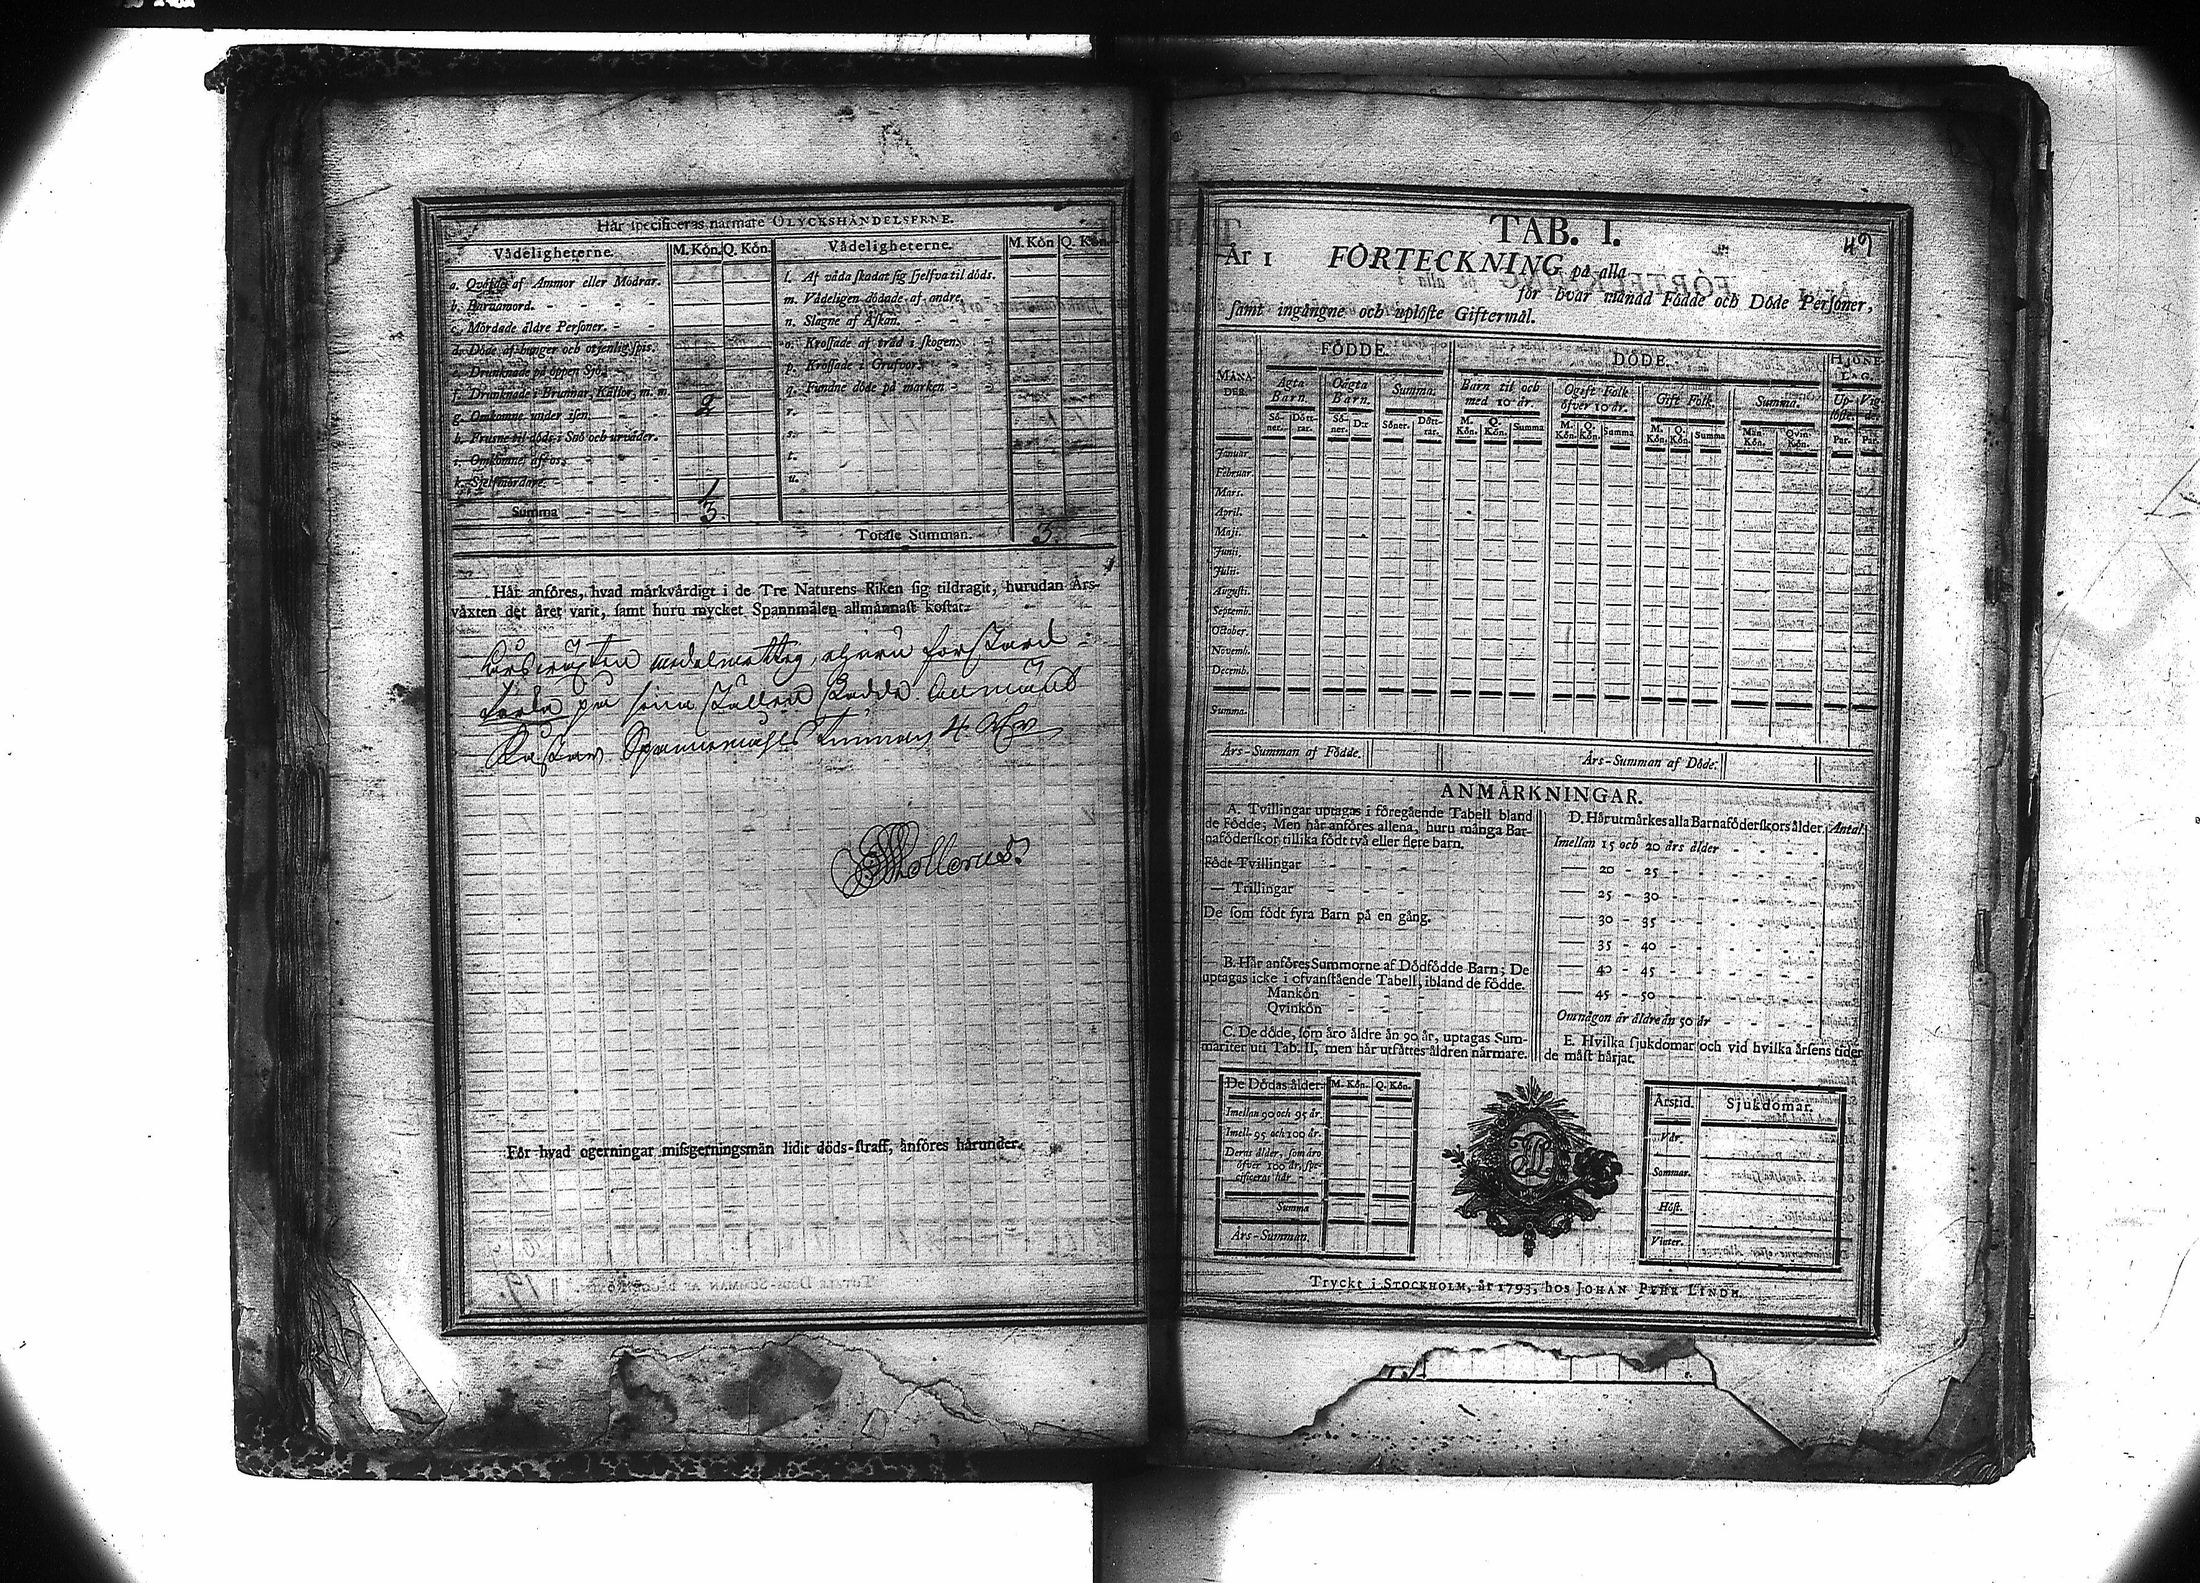 Hår specificeras närmare OLYCKSHÄNDELSERNE.
Vådeligheterne. M. Kön. Q. Kön. Vådeligheterne. M. Kön Q. Kön.
a. Qväfde af Ammor eller Modrar. l. Af våda skadat sig sjelfva til döds.
b. Barnamord. m. Vådeligen dödade af andre.
c. Mördade äldre Personer. n. Slagne af Åskan.
d. Döde af hunger och otjenlig spis. o. Krossade af träd i skogen.
e. Drunknade på öppen Sjö. p. Krossade i Grufvor.
f. Drunknade i Brunnar, Källor, m. m. 2 q. Fundne döde på marken
g. Omkomne under isen. r.
h. Frusne til döds i Snö och urväder. s.
i. Omkomne af os. t.
k. Sjelfmördare. 1 u.
Summa 3.
Totale Summan. 3.
Här anföres, hvad märkvärdigt i de Tre Naturens Riken sig tildragit, hurudan Års-
växten det året varit, samt huru mycket Spannmålen allmännast kostat.
Årsväxten medelmåttig, ehuru
på sina ställen
Spannemåhls Tunnan 4.
För hvad ogerningar missgerningsmän lidit döds-straff, anföres härunder.
19.
TOTALE DÖDS-SUMMAN AF
TAB. I.
49
År 1 FÖRTECKNING på alla
för hvar månad Födde och Döde Personer,
samt ingångne och uplöste Giftermål.
FÖDDE. DÖDE. HJONE-
LAG.
MÅNA-
DER. Ägta
Barn. Oägta
Barn. Summa. Barn til och
med 10 år. Ogift Folk
öfver 10 år. Gift Folk. Summa. Up-
löste. Vig-
de.
Sö-
ner. Dött-
rar. Sö-
ner. D:r Söner. Dött-
rar. M.
Kön. Q.
Kön. Summa M.
Kön. Q.
Kön. Summa M.
Kön. Q.
Kön. Summa Man-
Kön. Qvin-
Kön. Par. Par.
Januar.
Februar.
Mars.
April.
Maji.
Junii.
Julii.
Augusti.
Septemb.
October.
Novemb.
Decemb.
Summa.
Års-Summan af Födde. Års-Summan af Döde.
ANMÄRKNINGAR.
A. Tvillingar uptagas i föregående Tabell bland
de Födde; Men här anföres allena, huru många Bar-
naföderskor tillika födt två eller flere barn.
Födt Tvillingar
— Trillingar
De som födt fyra Barn på en gång.
B. Här anföres Summorne af Dödfödde Barn; De
uptagas icke i ofvanstående Tabell, ibland de födde.
Mankön
Qvinkön
C. De döde, som äro äldre än 90 år, uptagas Sum-
mariter uti Tab. II, men här utsättes åldren närmare.
D. Här utmärkes alla Barnaföderskors ålder. Antal
Imellan 15 och 20 års ålder
— 20 - 25
— 25 - 30
— 30 - 35
— 35 - 40
— 40 - 45
— 45 - 50
Om någon är äldre än 50 år
E. Hvilka sjukdomar och vid hvilka årsens tider
de mäst härjat.
De Dödas ålder. M. Kön. Q. Kön.
Imellan 90 och 95 år.
Imell. 95 och 100 år.
Deras ålder, som äro
öfver 100 år, spe-
cificeras här
Summa
Års-Summan.
Årstid. Sjukdomar.
Vår.
Sommar.
Höst.
Vinter.
Tryckt i STOCKHOLM, år 1793, hos JOHAN PEHR LINDH.